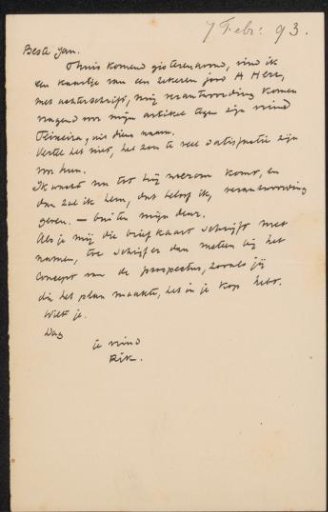 7 Febr: 93.
Beste Jan.
Thuis komend gisterenavond, vind ik
een kaartje van een zekeren A Herz,
met achterschrift, mij verantwoording komen
vragend voor mijn artikel tegen zijn vriend
Teixeira, uit diens naam.
Vertel het niet, het zou te veel satisfactie zijn
voor hun.
Ik wacht nu tot hij weerom komt, en
dan zal ik hem, dat beloof ik, verantwoording
geven. — buiten mijn deur.
Als je mij die briefkaart schrijft met
namen, toe schrijf er dan meteen bij het
Concept van de prospectus, zooals jij
die het plan maakte, het in je kop hebt.
Wilt je.
Dag
je vriend
Rik.